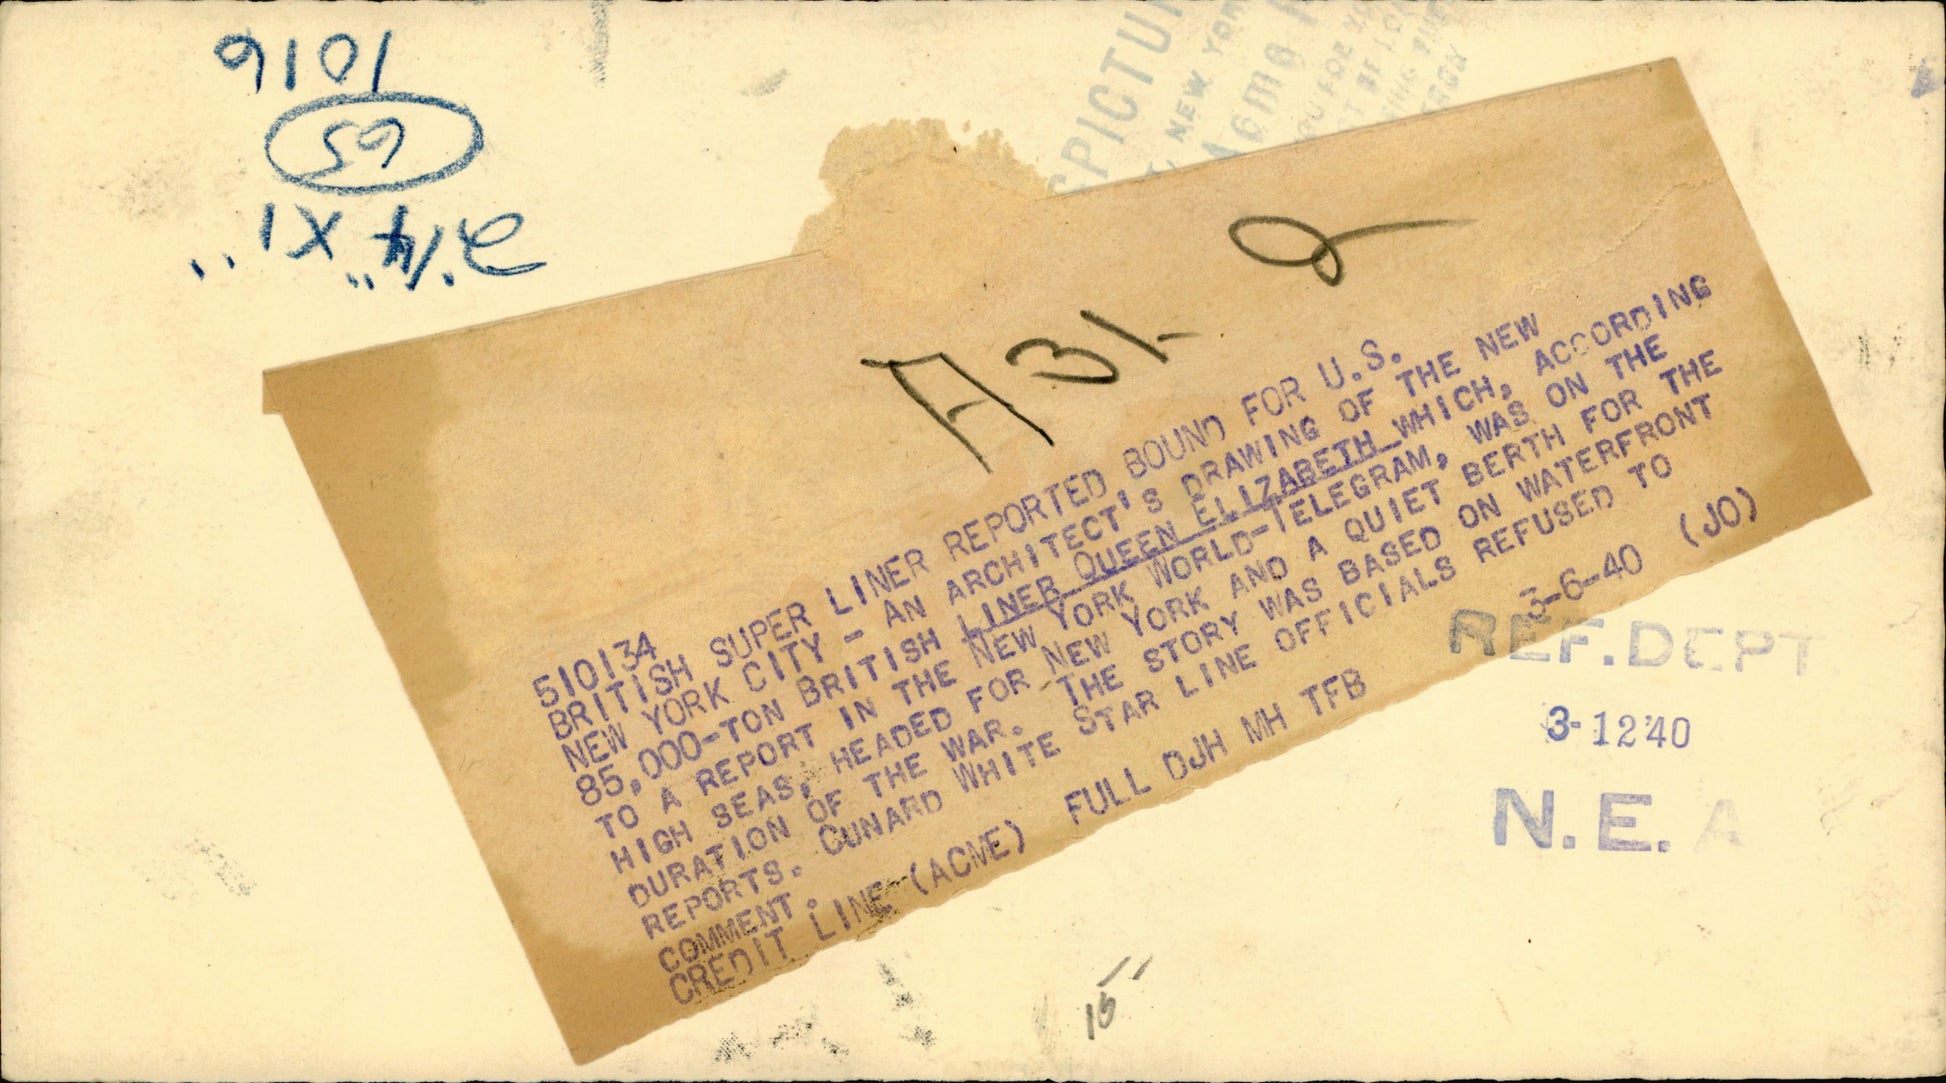 1016
65
2 1/4" X 1"
SPICTU
, NEW YOR
Acme
A31-2
510134
BRITISH SUPER LINER REPORTED BOUND FOR U.S.
NEW YORK CITY - AN ARCHITECT'S DRAWING OF THE NEW
85,000-TON BRITISH LINER QUEEN ELIZABETH WHICH, ACCORDING
TO A REPORT IN THE NEW YORK WORLD-TELEGRAM, WAS ON THE
HIGH SEAS, HEADED FOR NEW YORK AND A QUIET BERTH FOR THE
DURATION OF THE WAR. THE STORY WAS BASED ON WATERFRONT
REPORTS. CUNARD WHITE STAR LINE OFFICIALS REFUSED TO
COMMENT.
CREDIT LINE (ACME) FULL DJH MH TFB 3-6-40 (JO)
REF. DEPT
3-12 '40
N.E.A
15"